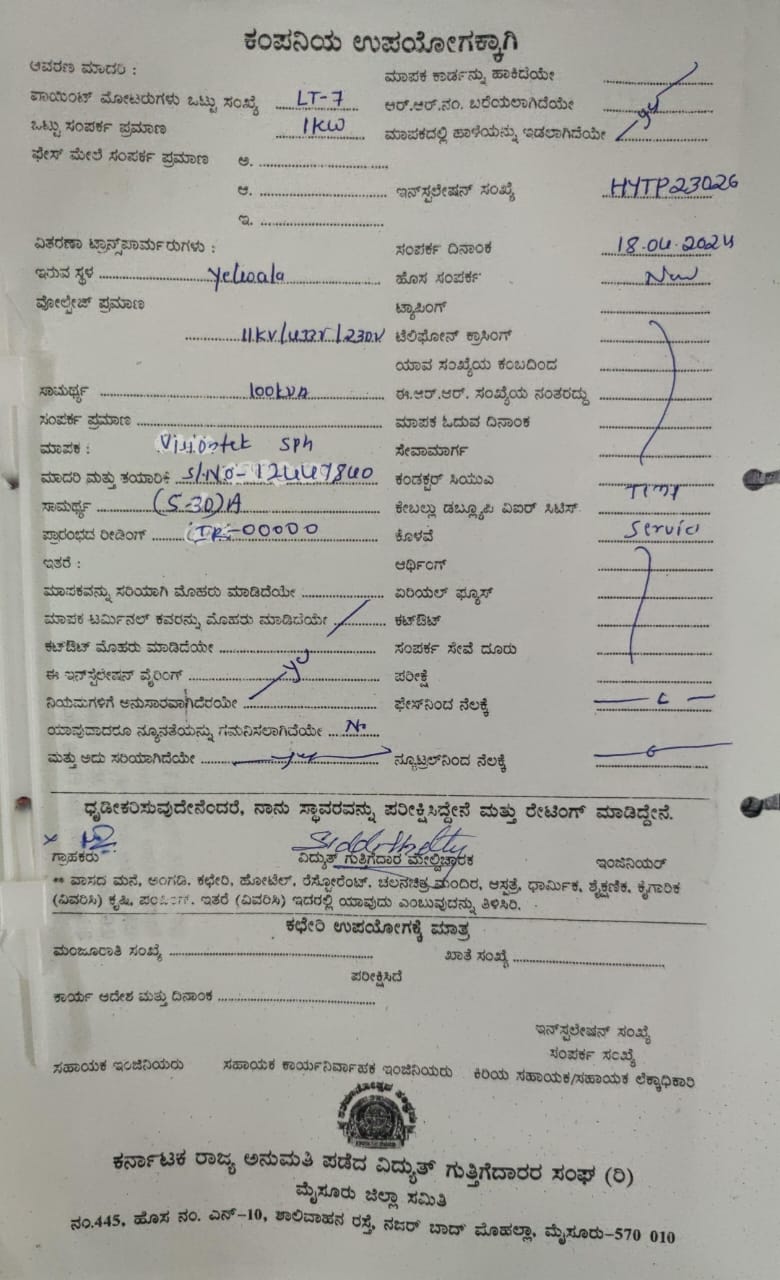 ಕಂಪನಿಯ ಉಪಯೋಗಕ್ಕಾಗಿ
ಆವರಣ ಮಾದರಿ :
ಮಾಪಕ ಕಾರ್ಡನ್ನು ಹಾಕಿದೆಯೇ
ಪಾಯಿಂಟ್ ಮೋಟರುಗಳು ಒಟ್ಟು ಸಂಖ್ಯೆ LT-7
ಆರ್.ಆರ್.ನಂ. ಬರೆಯಲಾಗಿದೆಯೇ
ಒಟ್ಟು ಸಂಪರ್ಕ ಪ್ರಮಾಣ 1KW
ಮಾಪಕದಲ್ಲಿ ಹಾಳೆಯನ್ನು ಇಡಲಾಗಿದೆಯೇ yes
ಫೇಸ್ ಮೇಲೆ ಸಂಪರ್ಕ ಪ್ರಮಾಣ ಅ.
ಆ.
ಇನ್‌ಸ್ಟಲೇಷನ್ ಸಂಖ್ಯೆ HYTP23026
ಇ.
ವಿತರಣಾ ಟ್ರಾನ್ಸ್‌ಪಾರ್ಮರುಗಳು :
ಸಂಪರ್ಕ ದಿನಾಂಕ 18.04.2024
ಇರುವ ಸ್ಥಳ Yelwala
ಹೊಸ ಸಂಪರ್ಕ New
ವೋಲ್ಟೇಜ್ ಪ್ರಮಾಣ
ಟ್ಯಾಪಿಂಗ್
11KV/433V/230V
ಟೆಲಿಫೋನ್ ಕ್ರಾಸಿಂಗ್
ಯಾವ ಸಂಖ್ಯೆಯ ಕಂಬದಿಂದ
ಸಾಮರ್ಥ್ಯ 100kVA
ಈ.ಆರ್.ಆರ್. ಸಂಖ್ಯೆಯ ನಂತರದ್ದು
ಸಂಪರ್ಕ ಪ್ರಮಾಣ
ಮಾಪಕ ಓದುವ ದಿನಾಂಕ
ಮಾಪಕ : Visiontek Sph
ಸೇವಾಮಾರ್ಗ
ಮಾದರಿ ಮತ್ತು ತಯಾರಿಕೆ S/No-12447840
ಕಂಡಕ್ಟರ್ ಸಿಯುವಿ
ಸಾಮರ್ಥ್ಯ (5-30)A
ಕೇಬಲ್ಲು ಡಬ್ಲ್ಯೂಪಿ ವಿಐರ್ ಸಿಟಿಸ್
ಪ್ರಾರಂಭದ ರೀಡಿಂಗ್ IR-00000
ಕೊಳವೆ Service
ಇತರೆ :
ಆರ್ಥಿಂಗ್
ಮಾಪಕವನ್ನು ಸರಿಯಾಗಿ ಮೊಹರು ಮಾಡಿದೆಯೇ
ಏರಿಯಲ್ ಫ್ಯೂಸ್
ಮಾಪಕ ಟರ್ಮಿನಲ್ ಕವರನ್ನು ಮೊಹರು ಮಾಡಿದೆಯೇ
ಕಟ್‌ಔಟ್
ಕಟ್‌ಔಟ್ ಮೊಹರು ಮಾಡಿದೆಯೇ
ಸಂಪರ್ಕ ಸೇವೆ ದೂರು
ಈ ಇನ್‌ಸ್ಟಲೇಷನ್ ವೈರಿಂಗ್ yes
ಪರೀಕ್ಷೆ
ನಿಯಮಗಳಿಗೆ ಅನುಸಾರವಾಗಿದೆರಯೇ
ಫೇಸ್‌ನಿಂದ ನೆಲಕ್ಕೆ
ಯಾವುದಾದರೂ ನ್ಯೂನತೆಯನ್ನು ಗಮನಿಸಲಾಗಿದೆಯೇ No
ಮತ್ತು ಅದು ಸರಿಯಾಗಿದೆಯೇ yes
ನ್ಯೂಟ್ರಲ್‌ನಿಂದ ನೆಲಕ್ಕೆ
ಧೃಡೀಕರಿಸುವುದೇನೆಂದರೆ, ನಾನು ಸ್ಥಾವರವನ್ನು ಪರೀಕ್ಷಿಸಿದ್ದೇನೆ ಮತ್ತು ರೇಟಿಂಗ್ ಮಾಡಿದ್ದೇನೆ.
ಗ್ರಾಹಕರು ವಿದ್ಯುತ್ ಗುತ್ತಿಗೆದಾರ ಮೇಲ್ವಿಚಾರಕ ಇಂಜಿನಿಯರ್
** ವಾಸದ ಮನೆ, ಅಂಗಡಿ. ಕಛೇರಿ, ಹೋಟೆಲ್, ರೆಸ್ಟೋರೆಂಟ್. ಚಲನಚಿತ್ರ ಮಂದಿರ, ಆಸ್ಪತ್ರೆ, ಧಾರ್ಮಿಕ, ಶೈಕ್ಷಣಿಕ, ಕೈಗಾರಿಕ
(ವಿವರಿಸಿ) ಕೃಷಿ, ಪಂಪಿಂಗ್. ಇತರೆ (ವಿವರಿಸಿ) ಇದರಲ್ಲಿ ಯಾವುದು ಎಂಬುವುದನ್ನು ತಿಳಿಸಿರಿ.
ಕಛೇರಿ ಉಪಯೋಗಕ್ಕೆ ಮಾತ್ರ
ಮಂಜೂರಾತಿ ಸಂಖ್ಯೆ ಖಾತೆ ಸಂಖ್ಯೆ
ಪರೀಕ್ಷಿಸಿದೆ
ಕಾರ್ಯ ಆದೇಶ ಮತ್ತು ದಿನಾಂಕ
ಇನ್‌ಸ್ಟಲೇಷನ್ ಸಂಖ್ಯೆ
ಸಂಪರ್ಕ ಸಂಖ್ಯೆ
ಸಹಾಯಕ ಇಂಜಿನಿಯರು ಸಹಾಯಕ ಕಾರ್ಯನಿರ್ವಾಹಕ ಇಂಜಿನಿಯರು ಕಿರಿಯ ಸಹಾಯಕ/ಸಹಾಯಕ ಲೆಕ್ಕಾಧಿಕಾರಿ
ಕರ್ನಾಟಕ ರಾಜ್ಯ ಅನುಮತಿ ಪಡೆದ ವಿದ್ಯುತ್ ಗುತ್ತಿಗೆದಾರರ ಸಂಘ (ರಿ)
ಮೈಸೂರು ಜಿಲ್ಲಾ ಸಮಿತಿ
ನಂ.445, ಹೊಸ ನಂ. ಎನ್-10, ಶಾಲಿವಾಹನ ರಸ್ತೆ, ನಜರ್ ಬಾದ್ ಮೊಹಲ್ಲಾ, ಮೈಸೂರು-570 010